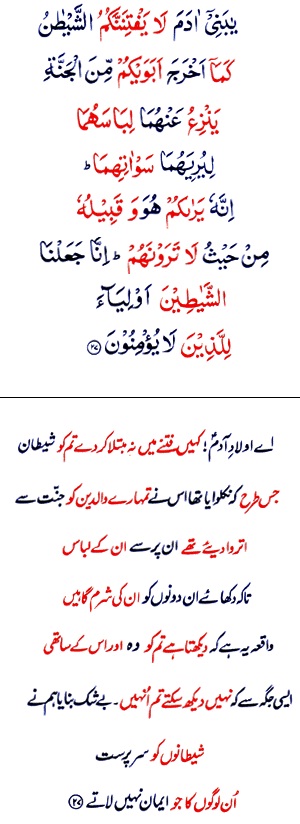 يٰبَنِىْٓ اٰدَمَ لَا يَفْتِنَنَّكُمُ الشَّيْطٰنُ
كَمَاۤ اَخْرَجَ اَبَوَيْكُمْ مِّنَ الْجَنَّةِ
يَنْزِعُ عَنْهُمَا لِبَاسَهُمَا
لِيُرِيَهُمَا سَوْاٰتِهِمَا ؕ
اِنَّهٗ يَرٰىكُمْ هُوَ وَ قَبِيْلُهٗ
مِنْ حَيْثُ لَا تَرَوْنَهُمْ ؕ اِنَّا جَعَلْنَا
الشَّيٰطِيْنَ اَوْلِيَآءَ
لِلَّذِيْنَ لَا يُؤْمِنُوْنَ ﴿۲۷﴾
اے اولادِ آدمؑ! کہیں فتنے میں نہ مبتلا کر دے تم کو شیطان
جس طرح کہ نکلوایا تھا اس نے تمہارے والدین کو جنّت سے
اتروا دیئے تھے ان پر سے ان کے لباس
تاکہ دکھائے ان دونوں کو ان کی شرم گاہیں
واقعہ یہ ہے کہ دیکھتا ہے تم کو وہ اور اس کے ساتھی
ایسی جگہ سے کہ نہیں دیکھ سکتے تم اُنہیں۔ بے شک بنایا ہم نے
شیطانوں کو سرپرست
اُن لوگوں کا جو ایمان نہیں لاتے ﴿۲۷﴾